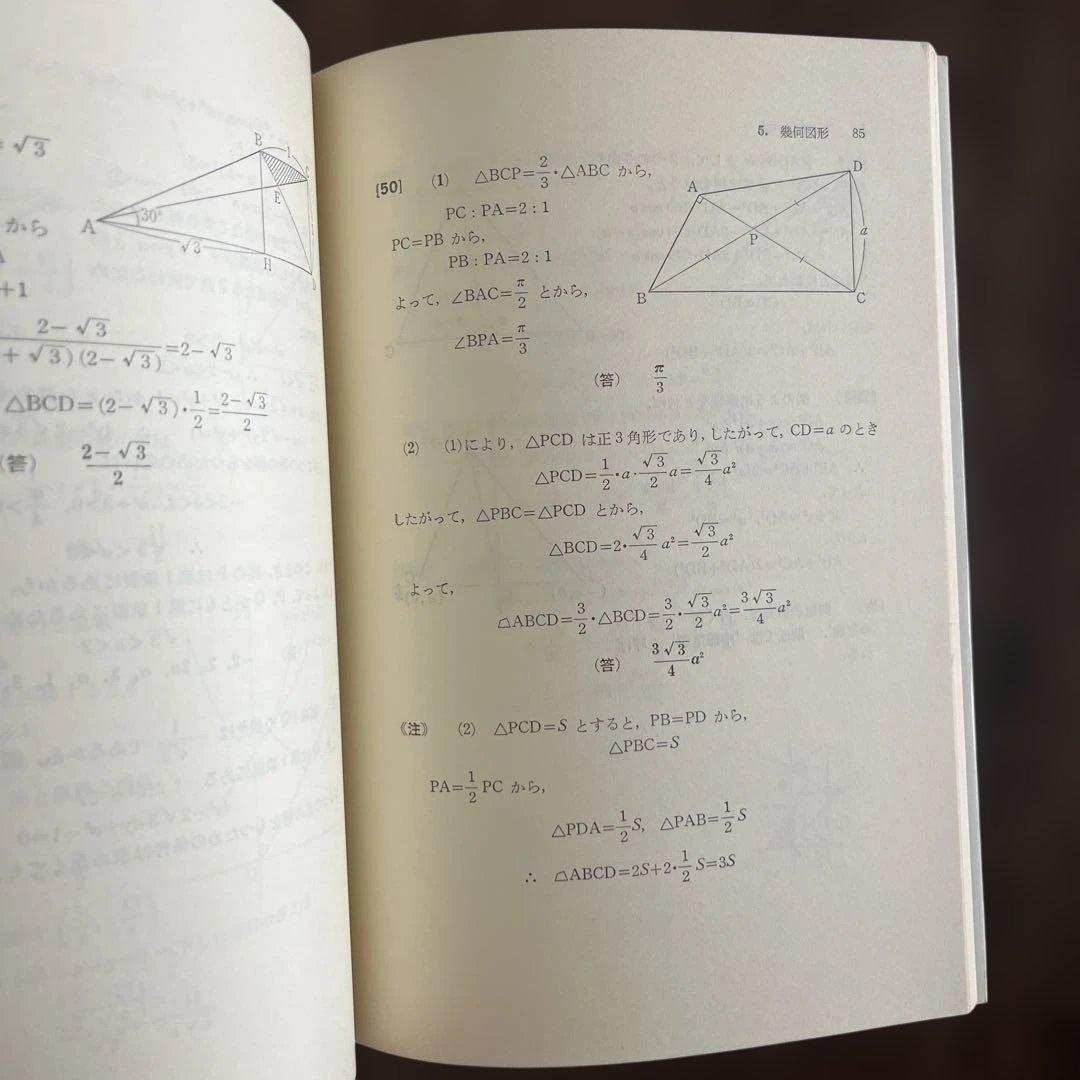 = √3
から
+1
2-√3
+√3)(2-√3) =2-√3
△BCD=(2-√3)・1/2=2-√3/2
(答) 2-√3/2
B
1
C
E
A
30°
√3
H
D
5. 幾何図形 85
[50] (1) △BCP=2/3・△ABC から,
PC:PA=2:1
PC=PB から,
PB:PA=2:1
よって, ∠BAC=π/2 とから,
∠BPA=π/3
(答) π/3
A
D
P
a
B
C
(2) (1)により, △PCD は正3角形であり, したがって, CD=a のとき
△PCD=1/2・a・√3/2 a=√3/4 a²
したがって, △PBC=△PCD とから,
△BCD=2・√3/4 a²=√3/2 a²
よって,
⏢ABCD=3/2・△BCD=3/2・√3/2 a²=3√3/4 a²
(答) 3√3/4 a²
《注》 (2) △PCD=S とすると, PB=PD から,
△PBC=S
PA=1/2 PC から,
△PDA=1/2 S, △PAB=1/2 S
∴ ⏢ABCD=2S+2・1/2 S=3S